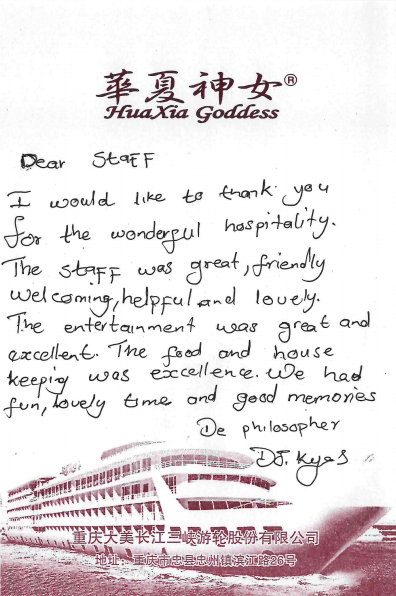 華夏神女®
HuaXia Goddess
Dear Staff
I would like to thank you
for the wonderful hospitality.
The staff was great, friendly
welcoming, helpful and lovely.
The entertainment was great and
excellent. The food and house
keeping was excellence. We had
fun, lovely time and good memories
De philosopher
重庆大美长江三峡游轮股份有限公司
地址：重庆市忠县忠州镇滨江路26号